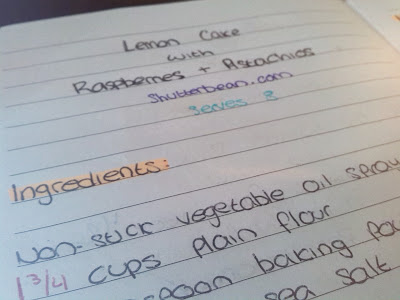 Lemon Cake
with
Raspberries + Pistachios
Shutterbean.com
Serves 8
Ingredients:
Non-stick vegetable oil spray
1 3/4 cups plain flour
baking
sea salt